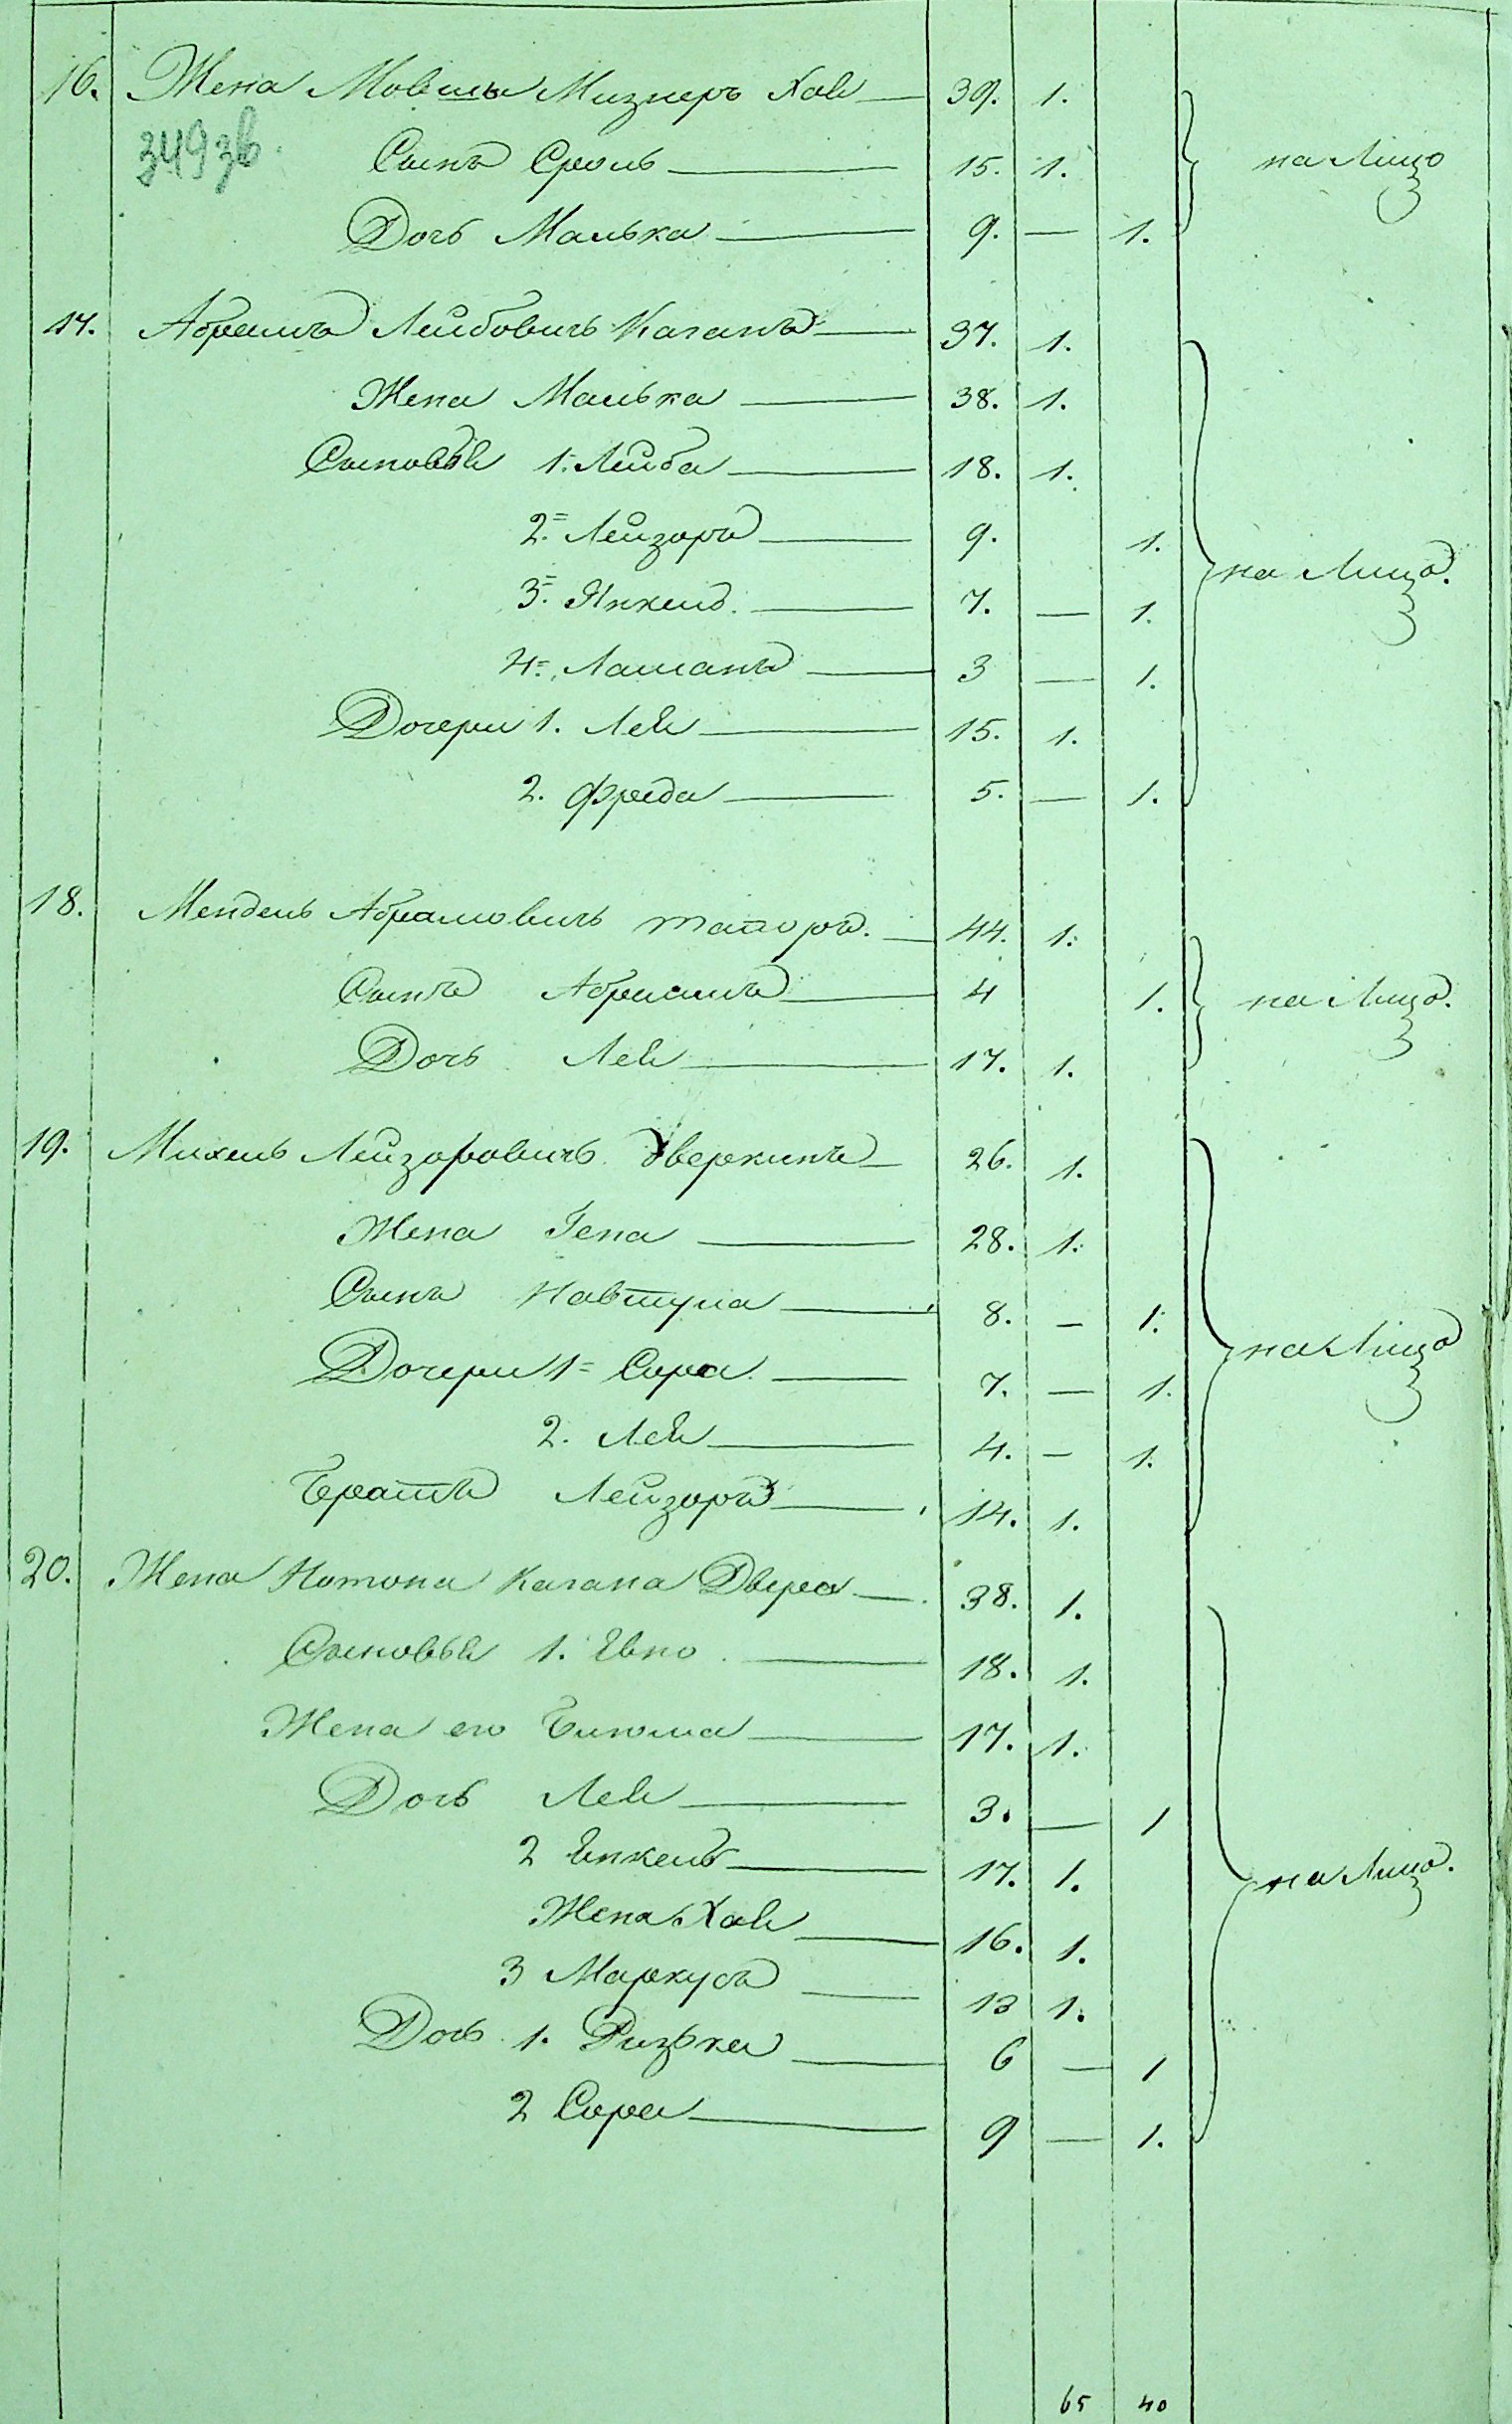 16. Жена Мовши Мизнеръ Хаѣ — 39. 1. на Лицо
349 зв.
Сынъ Сроль — 15. 1.
Дочь Малька — 9. — 1.
17. Абрамъ Лейбовичь Каганъ — 37. 1.
Жена Малька — 38. 1.
Сыновьѣ 1. Лейба — 18. 1.
2. Лейзоръ — 9. 1. на Лицо.
3. Янкель — 7. — 1.
4. — 3 — 1.
Дочери 1. Леѣ — 15. 1.
2. Фрейда — 5. — 1.
18. Мендель Абрамовичь Таторъ. — 44. 1.
Сынъ Абрамъ — 4 1. на Лицо.
Дочь Леѣ — 17. 1.
19. Михель Лейзоровичь Дверкинъ — 26. 1.
Жена Гена — 28. 1.
Сынъ Навтула — 8. — 1.
Дочери 1 Сора — 7. — 1. на Лицо
2. Леѣ — 4. — 1.
Братъ Лейзоръ — 14. 1.
20. Жена Нотона Кагана Двера — 38. 1.
Сыновьѣ 1. Евно — 18. 1.
Жена его Блюма — 17. 1.
Дочь Леѣ — 3. — 1
2 Енкель — 17. 1. на Лицо.
Жена Хаѣ — 16. 1.
3 Маркусъ — 13 1.
Дочь 1. Ризька — 6 — 1
2 Сора — 9 — 1.
65 40